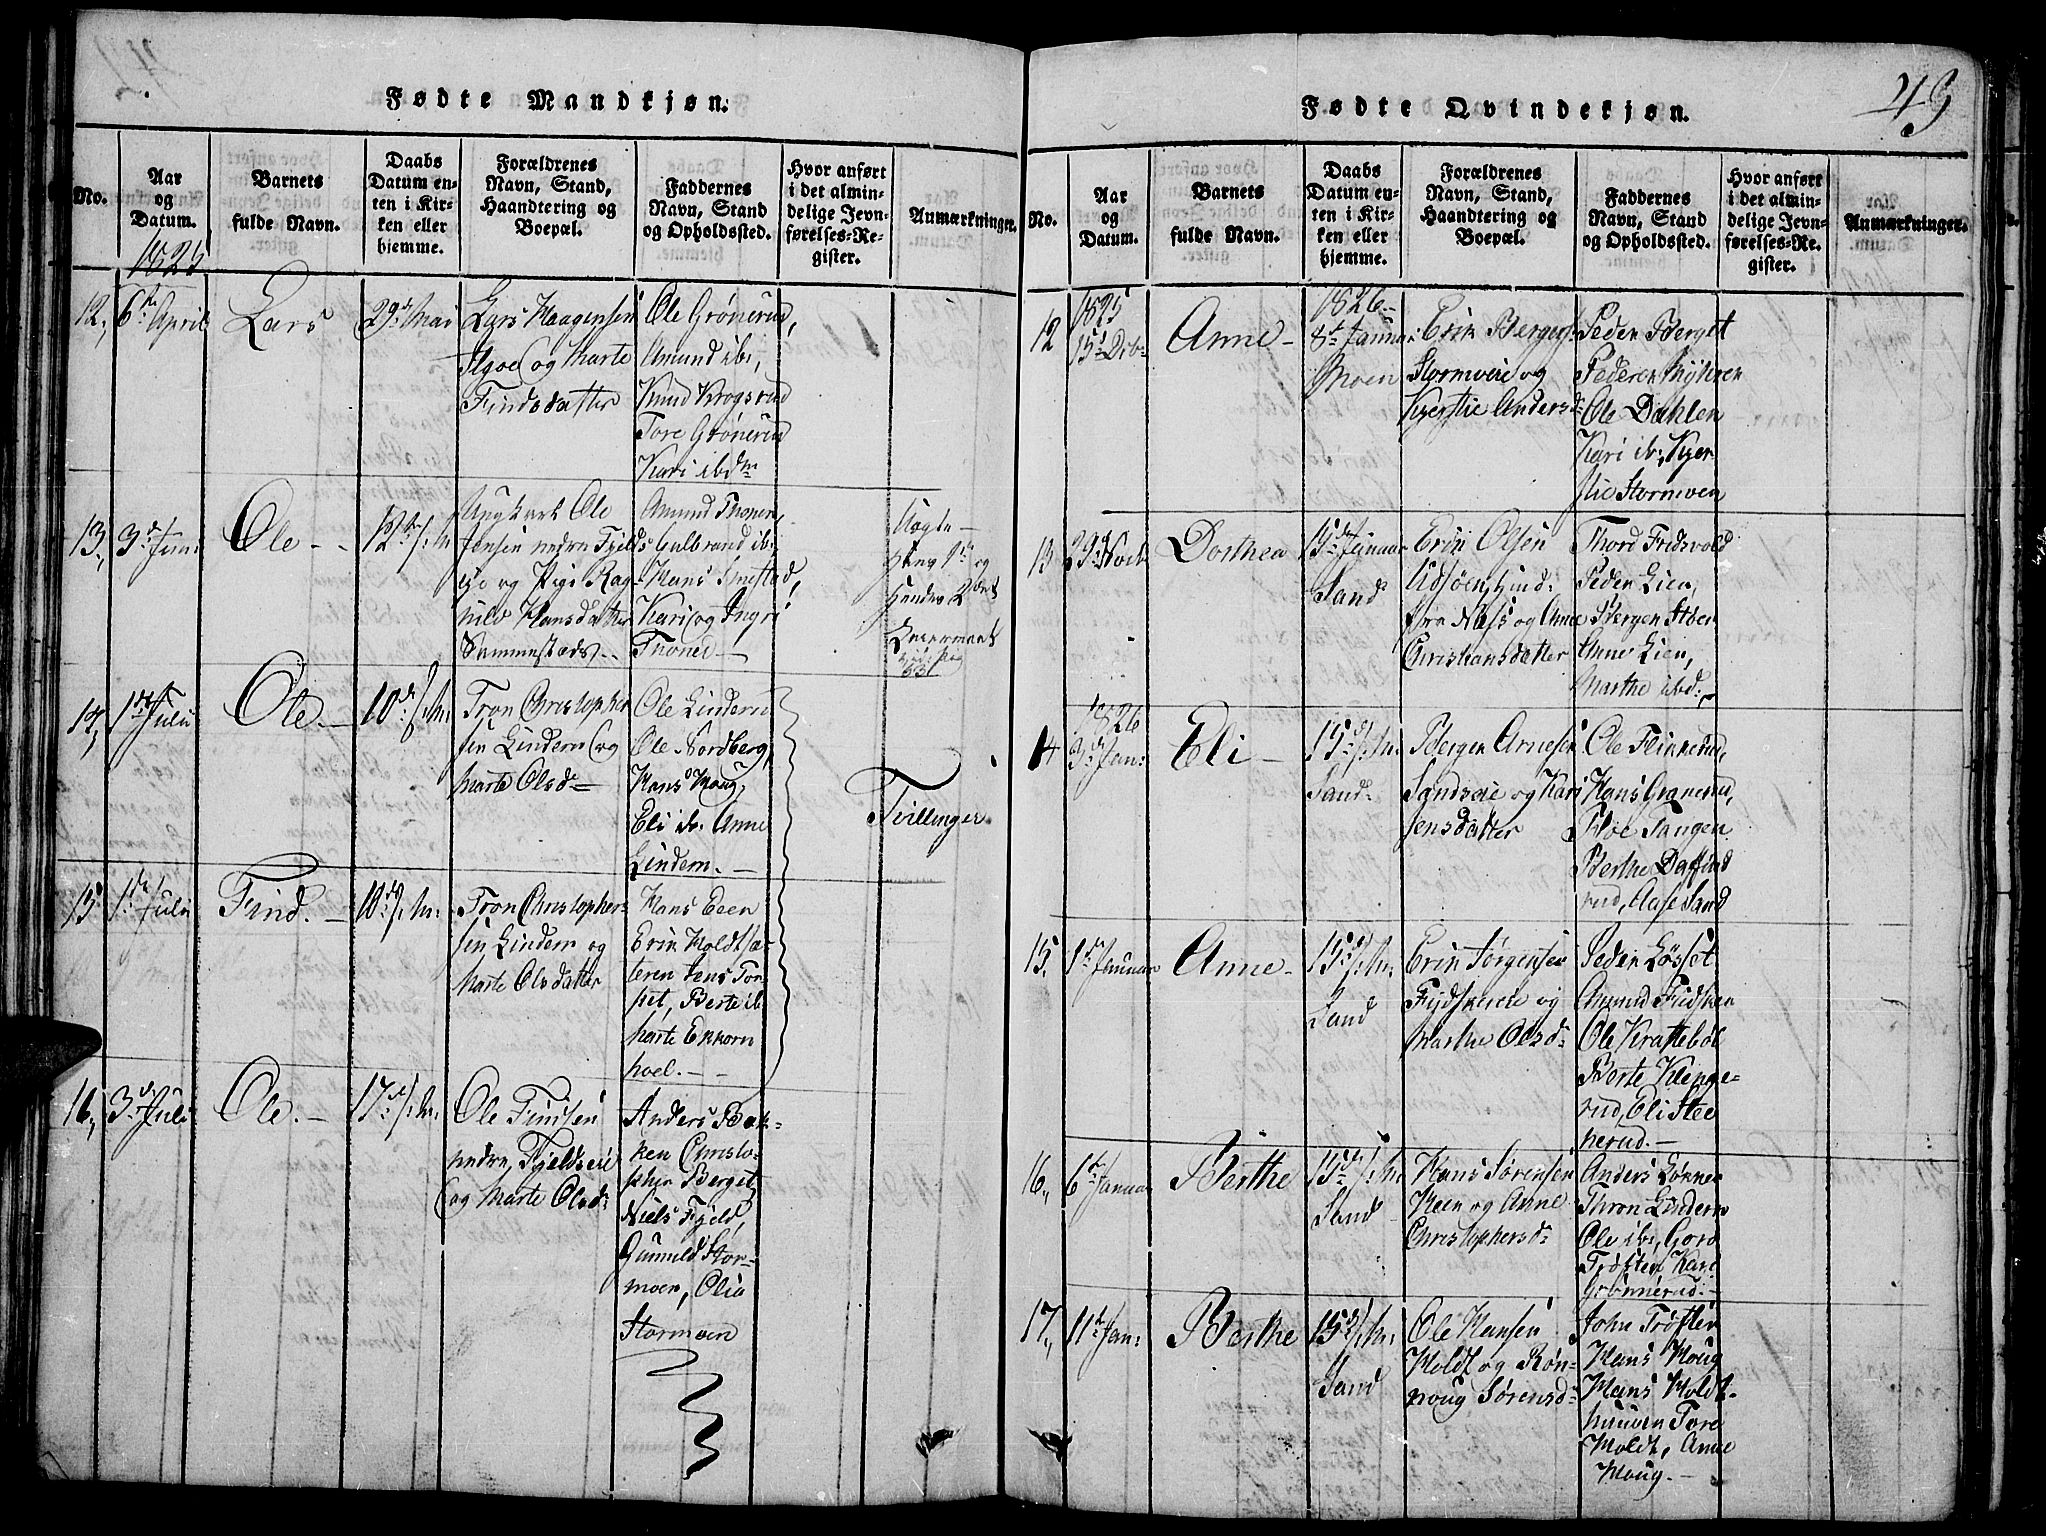 Fødte Mandkjøn.
No.
Aar
og
Datum.
Barnets
fulde Navn.
Daabs
Datum en-
ten i Kir-
ken eller
hjemme.
Forældrenes
Navn, Stand,
Haandtering og
Boepæl.
Faddernes
Navn, Stand
og Opholdssted.
Hvor anført
i det almin-
delige Jevn-
førelses-Re-
gister.
Anmærkninger.
1825
12, 6te April
Lars
29de Mai
Lars Haagensen
og Marte
Findsdatter
Ole Grönerud,
Amund ib:,
Knud Krogsrud
Tore Grönerud
Kari ibdm
13, 3de Juni
Ole -
12te s: m:
Ungkarl Ole
Jensen nedre Fjelds
eie og Pige Rag-
nild Hansdatter
Sammesteds -
Amund Thonen,
Gulbrand ib:
Hans Smestad,
Kari og Ingri
Thoned -
14, 1ste Juli
Ole. -
10de s: m:
Tron Christopher
sen Lindern og
Marte Olsd=
Ole Lindern
Ole Nordberg,
Hans Houg,
Eli ib: Anne
Lindern. -
Tvillinger.
15, 1ste Juli
Find. -
10de s: m:
Tron Christopher-
sen Lindern og
Marte Olsdatter
Hans Eeen
Erik Holdtsæ-
teren Jens Tor-
set, Berte ib
Marte Ekkorn
hoel. -
16, 3de Juli
Ole. -
17de s: m:
Ole Finsen
nedre Fjeldseie
og Marte Olsd:
Anders Bak-
ken Christo-
pher Berget,
Niels Fjeld,
Gunnild Stor-
moen, Olia
Stormoen
Fødte Qvindekjøn.
49
No.
Aar
og
Datum.
Barnets
fulde Navn.
Daabs
Datum en-
ten i Kir-
ken eller
hjemme.
Forældrenes
Navn, Stand,
Haandtering og
Boepæl.
Faddernes
Navn, Stand
og Opholdssted.
Hvor anført
i det almin-
delige Jevn-
førelses-Re-
gister.
Anmærkninger.
12
1825
15de Dcb:
Anne -
1826 -
8de Januar
Moen
Erik Bergers:
Stormoeie og
Kjerstie Andersd:
Peder Berget
Peder Myhren
Ole Dahlen
Kari ib:, Kjer
stie Stormoen
13 29de Novb:
Dorthea
15de Januar
Sand
Erik Olsen
fra Næs og Anne
Christiansdatter
Thord Fridsvold
Peder Lien,
Bergen Stoer
Anne Lien,
Marthe ibd: -
1826
14 3de Jan:
Eli -
15de s: m:
Sand
Bergen Arnesen
Sandseie og Kari
Jensdatter
Ole Flinkerud,
Hans Granerud,
Floe Tangen
Berthe Daffind
rud, Aase Sand
15, 1ste Januar
Anne -
15de s: m:
Sand
Erik Jörgensen
og
Marthe Olsd:
Peder Lösset
Amund Fridsken
Ole Krattebøl
Berte Klenge-
rud, Eli Stee
nerud. -
16, 6te Januar
Berthe
15de s: m:
Sand
Hans Sörensen
Heen og Anne
Christophersd:
Anders Lökken
Thron Lindern
Ole ib:, Goro
Tröften Kari
Grönnerud. -
17, 11te Jan:
Berthe
15de s: m:
Sand
Ole Hansen
Holdt og Rön-
noug Sörensd:
John Tröften
Hans Houg
Hans Holdt-
huuven Tore
Holdt, Anne
Houg. -